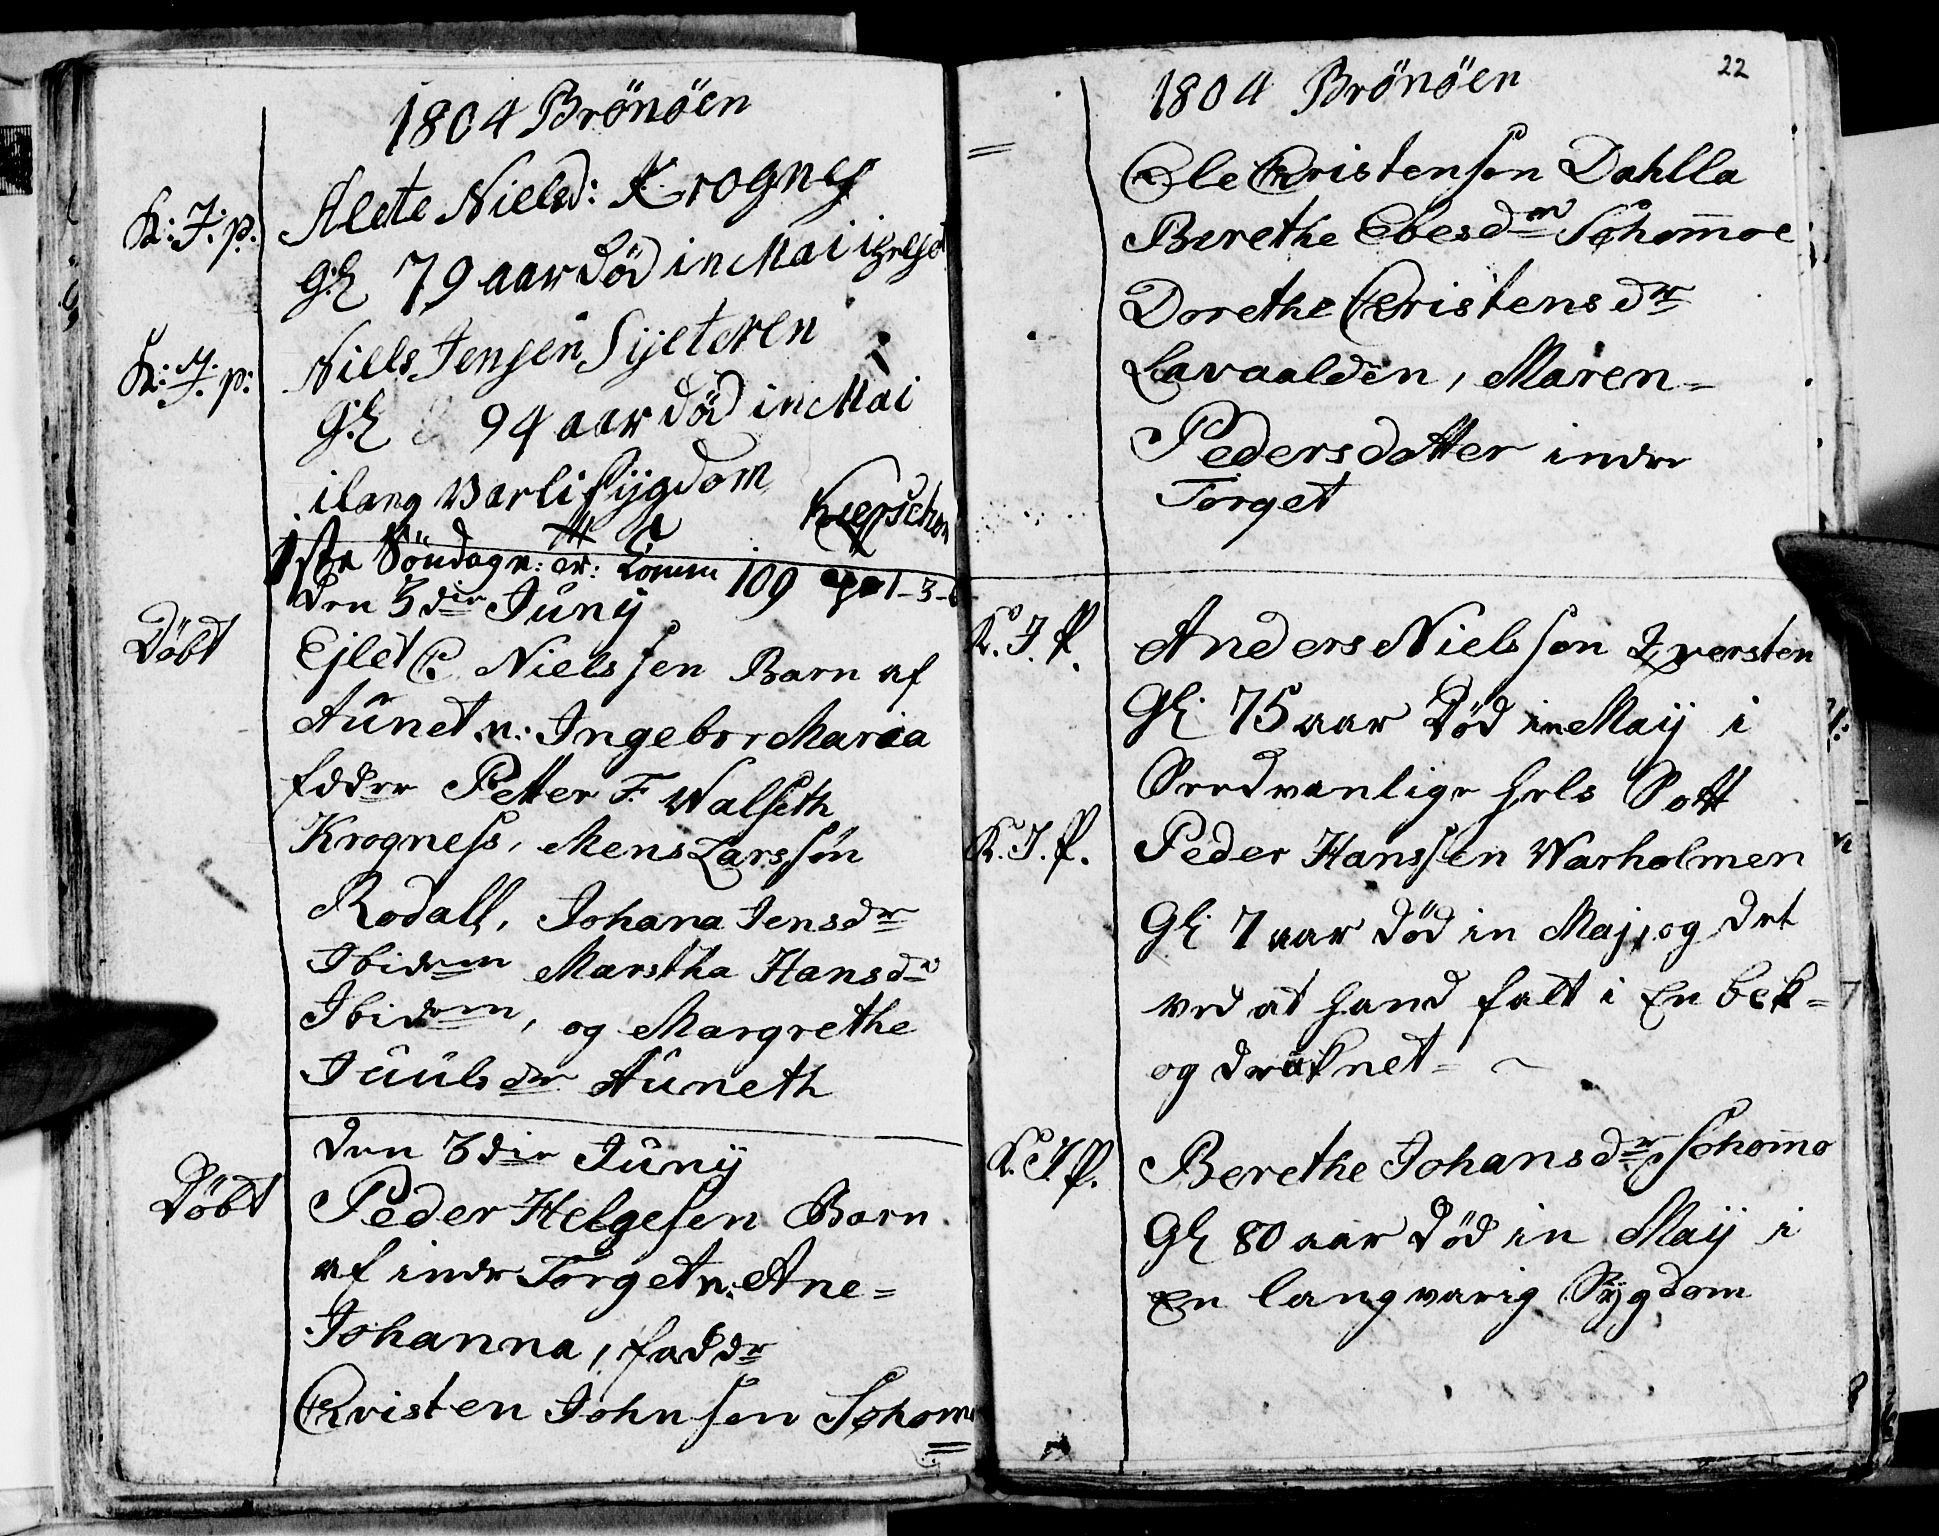 1804 Brönöen
K: J: p:
Alete Nielsd: Krognes
Gl 79 aar död in Mai i
K: J: p:
Niels Jensen Sÿeteren
Gl 94 aar död in Mai
i lang varli sÿgdom
1ste Söndag e: Comm 109 1-3-
den 3die Junÿ
Döbt
Ejlet C Nielssen Barn af
Aunet n: Ingebor Maria
Petter F. Walseth
Krogness, Mens Larssön
Rodall, Johana Jensdr
Ibidem Marstha Hansdr
Ibidem, og Margrethe
Juulsdr Auneth
den 3die Junÿ
Döbt
Peder Helgesen Barn
af indr Torget n: Ane=
Johanna, faddr
Christen Johnsen Søhom
22
1804 Brönöen
Ole Christensen Dahlla
Berethe Ebesdr Søhom̄oe
Dorethe Christensdr
Lavaalden, Maren=
Pedersdatter indre
Torget
K. J. P.
Anders Nielsson Qversten
Gl: 75 aar Död in Maÿ i
Sædvanlige Hels Sott
K. J. P.
Peder Hanssen Warholmen
Gl: 7 aar död in Maj, og det
ved at hand falt i En bek=
og druknet=
K. J. P.
Berethe Johansdr Søhom̄o
Gl 80 aar Död in Maÿ i
En langvarig Sÿgdom